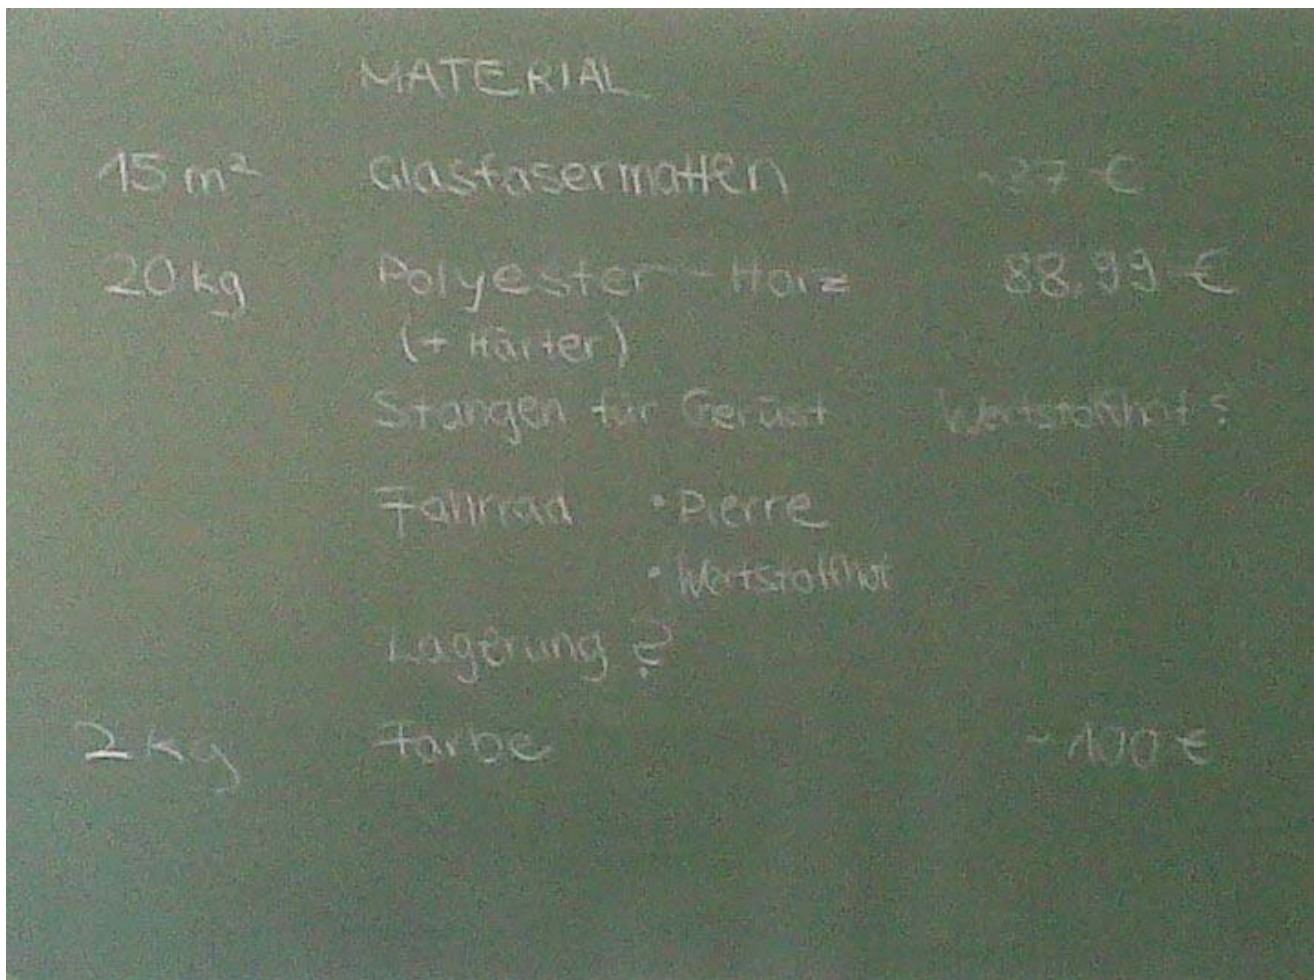 MATERIAL
15 m² Glasfasermatten ~37 €
20 kg Polyester-Harz 88,99 €
(+ Härter)
Stangen für Gerüst Wertstoffhof?
Fahrrad • Pierre
• Wertstoffhof
Lagerung?
2 kg Farbe ~100 €